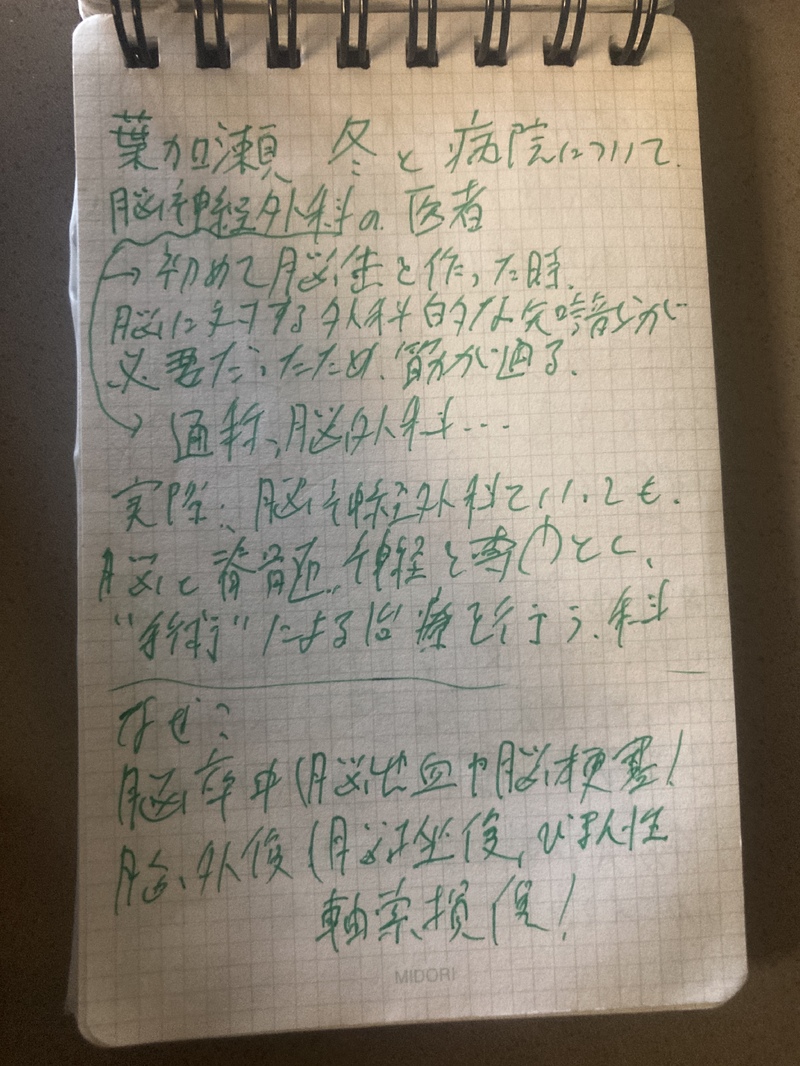 葉加瀬 冬と病院について.
脳神経外科の医者
→初めて脳生と作った時.
脳に対する外科的な知識が
必要だったため、筋が通る.
→通称、脳外科…
実際: 脳神経外科といっても.
脳と脊髄、神経を専門とし、
"手術"による治療を行う、科
なぜ:
脳卒中(脳出血や脳梗塞)
脳外傷(脳挫傷、びまん性
軸索損傷)
MIDORI